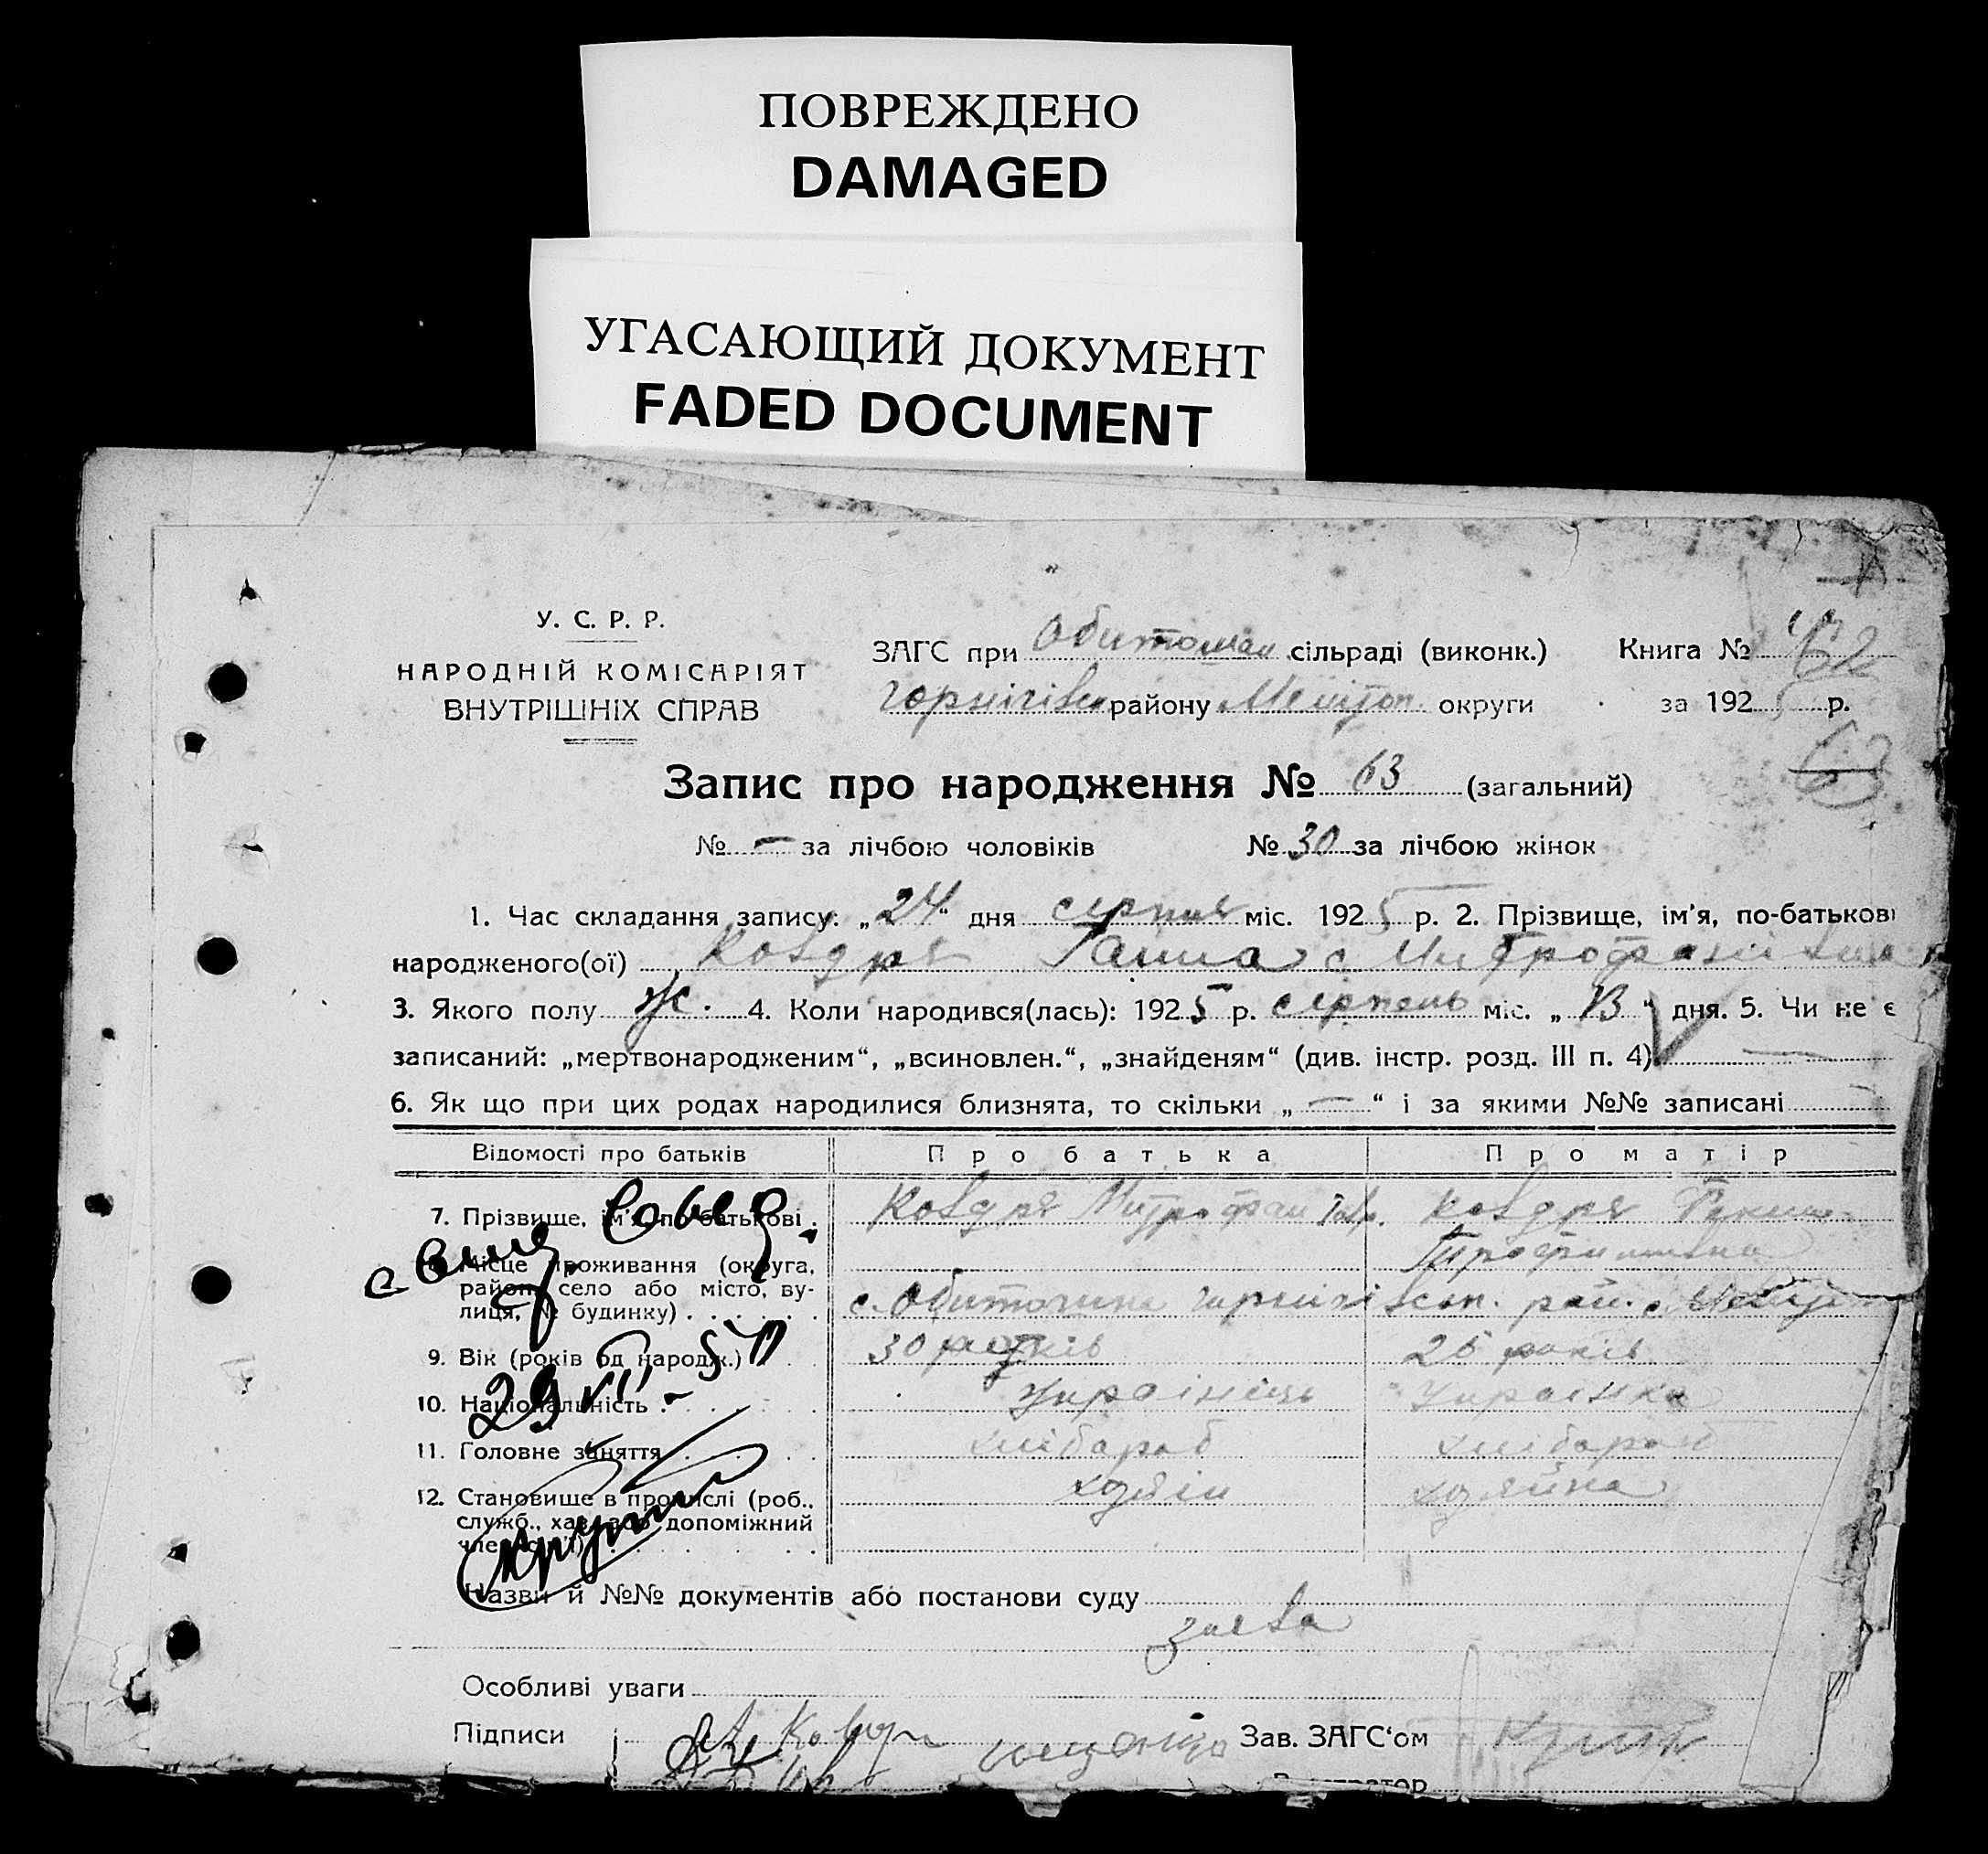 ПОВРЕЖДЕНО
DAMAGED
УГАСАЮЩИЙ ДОКУМЕНТ
FADED DOCUMENT
У. С. Р. Р.
НАРОДНІЙ КОМІСАРІЯТ
ВНУТРІШНІХ СПРАВ
ЗАГС при сільраді (виконк.) Книга № 62
району округи за 1925 р.
63
Запис про народження № 63 (загальний)
№ — за лічбою чоловіків № 30 за лічбою жінок
1. Час складання запису: „24“ дня серпня міс. 1925 р. 2. Прізвище, ім’я, по-батькові
народженого(ої) Ковдря Ганна
3. Якого полу ж. 4. Коли народився(лась): 1925 р. серпень міс. „13“ дня. 5. Чи не є
записаний: „мертвонародженим“, „всиновлен.“, „знайденям“ (див. інстр. розд. III п. 4) —
6. Як що при цих родах народилися близнята, то скільки „—“ і за якими №№ записані
Відомості про батьків Про батька Про матір
7. Прізвище, ім’я, по-батькові Ковдря Митрофан Ковдря
Трофимівна
Місце проживання (округа,
район, село або місто, ву-
лиця, № будинку) с. Обиточна рай.
9. Вік (років од народж.) 30 років 25 років
10. Національність Українець Українка
11. Головне заняття хлібороб хлібороб
12. Становище в промислі (роб., хозяін хозяйка
служб., хаз. або допоміжний
член сім’ї)
Назви й №№ документів або постанови суду
Особливі уваги
Підписи Зав. ЗАГС‘ом